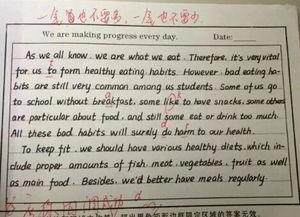 一个字也不需多,一个也不需少.
We are making progress every day. Date:
As we all know, we are what we eat. Therefore, it's very vital
for us to form healthy eating habits. However, bad eating ha-
bits are still very common among us students. Some of us go
to school without breakfast, some like to have snacks, some others
are particular about food, and still some eat or drink too much.
All these bad habits will surely do harm to our health.
To keep fit, we should have various healthy diets, which in-
clude proper amounts of fish, meat, vegetables, fruit as well
as main food. Besides, we'd better have meals regularly.